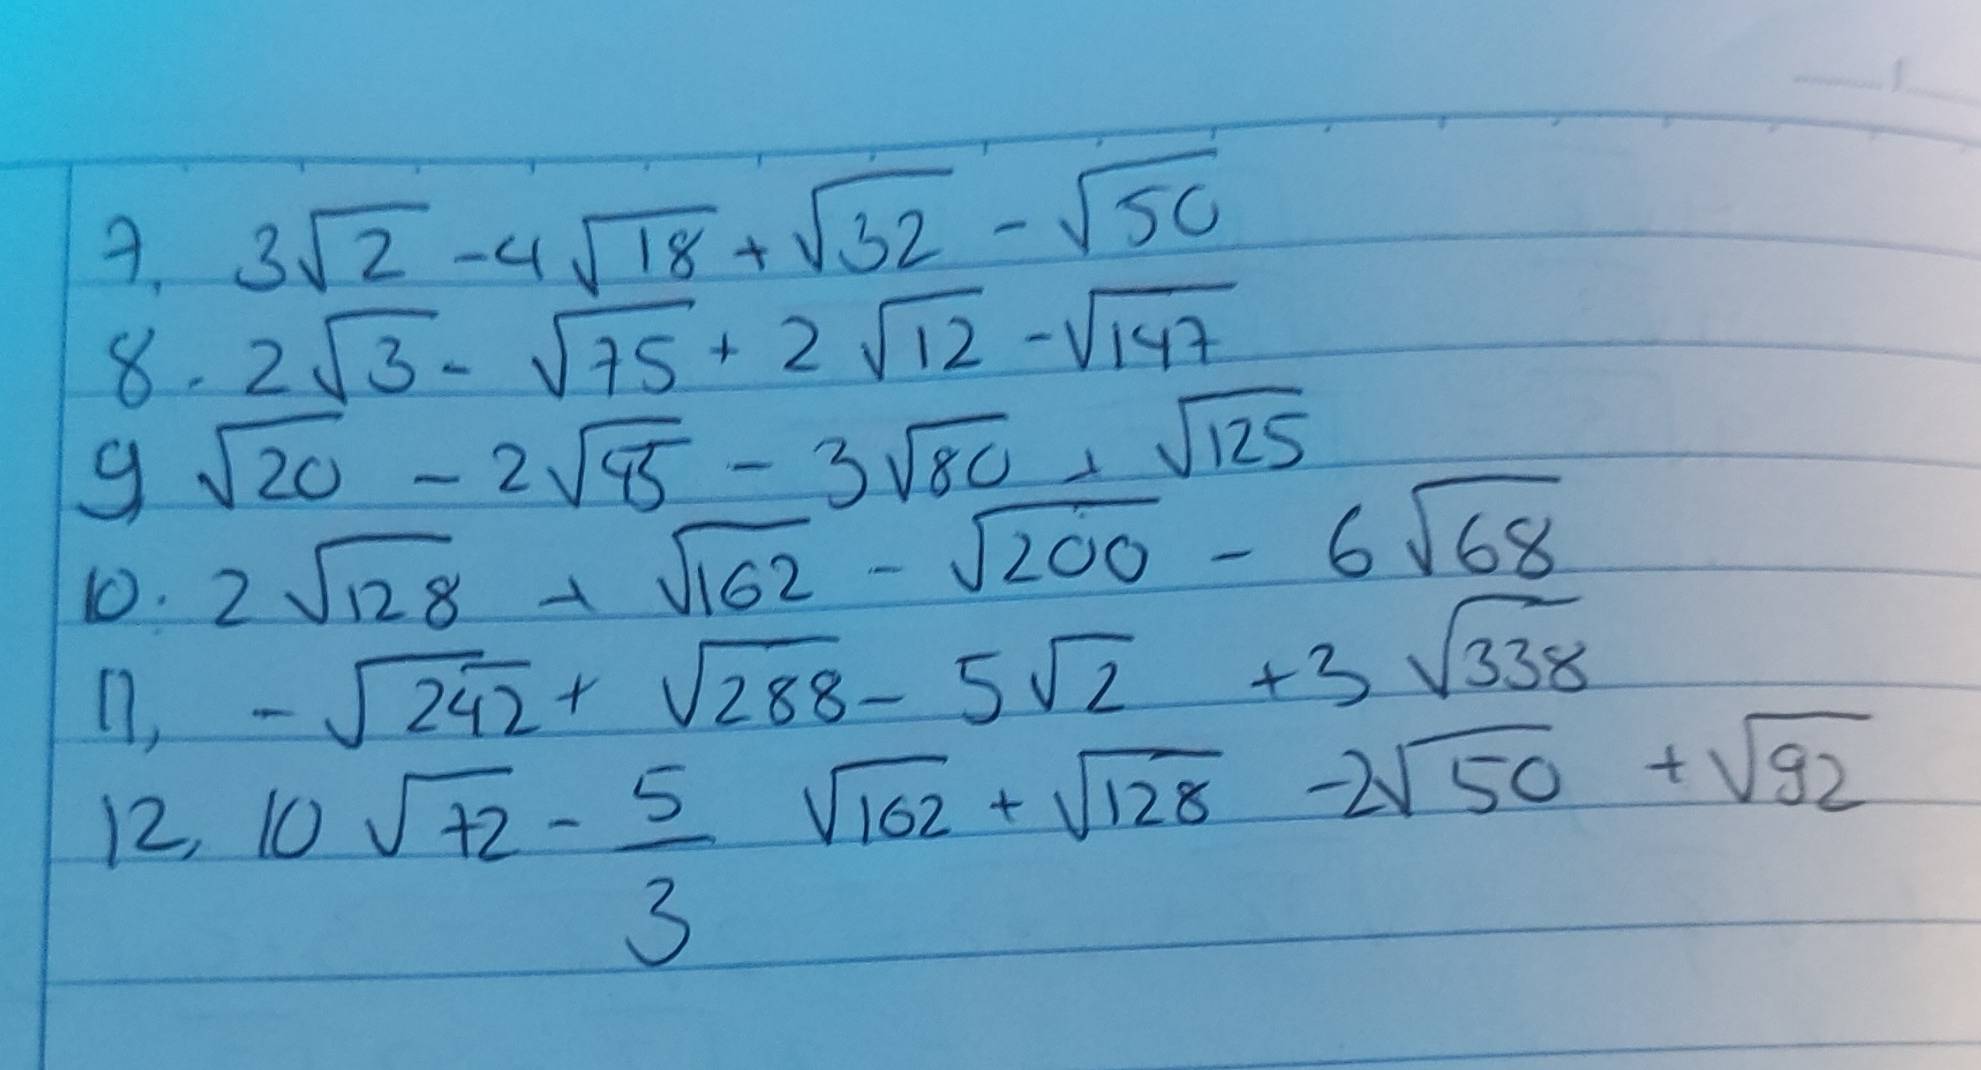 7. 3√2 - 4√18 + √32 - √50
8. 2√3 - √75 + 2√12 - √147
9 √20 - 2√45 - 3√80 + √125
10. 2√128 + √162 - √200 - 6√68
11, -√242 + √288 - 5√2 + 3√338
12, 10√72 - 5/3 √162 + √128 - 2√50 + √92